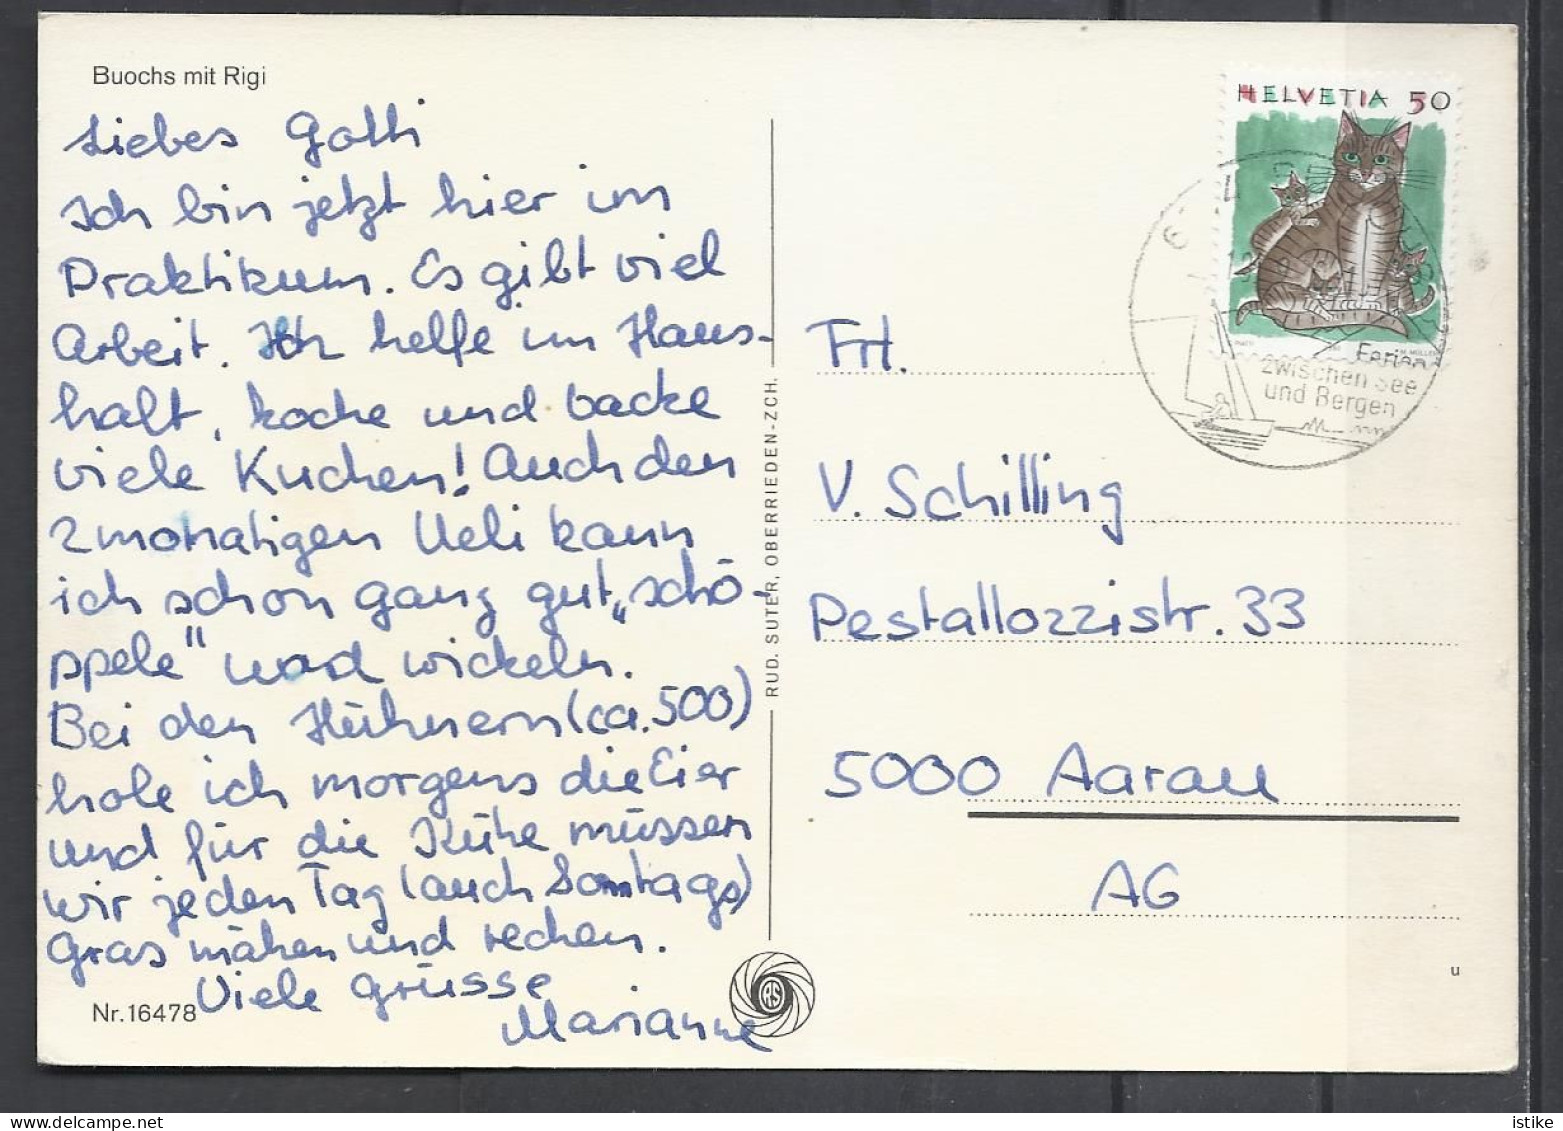 Buochs mit Rigi
Liebes Gotti
Ich bin jetzt hier im
Praktikum. Es gibt viel
Arbeit. Ich helfe im Haus-
halt, koche und backe
viele Kuchen! Auch den
2 monatigen Ueli kann
ich schon ganz gut „schö-
ppele" und wickeln.
Bei den Hühnern (ca. 500)
hole ich morgens die Eier
und für die Kühe müssen
wir jeden Tag (auch Sonntags)
Gras mähen und rechen.
Viele Grüsse
Marianne
Nr. 16478
RUD. SUTER, OBERRIEDEN-ZCH.
RS
HELVETIA 50
M. MÜLLER
Ferien
zwischen See
und Bergen
Frl.
V. Schilling
Pestallozzistr. 33
5000 Aarau
AG
u
istike